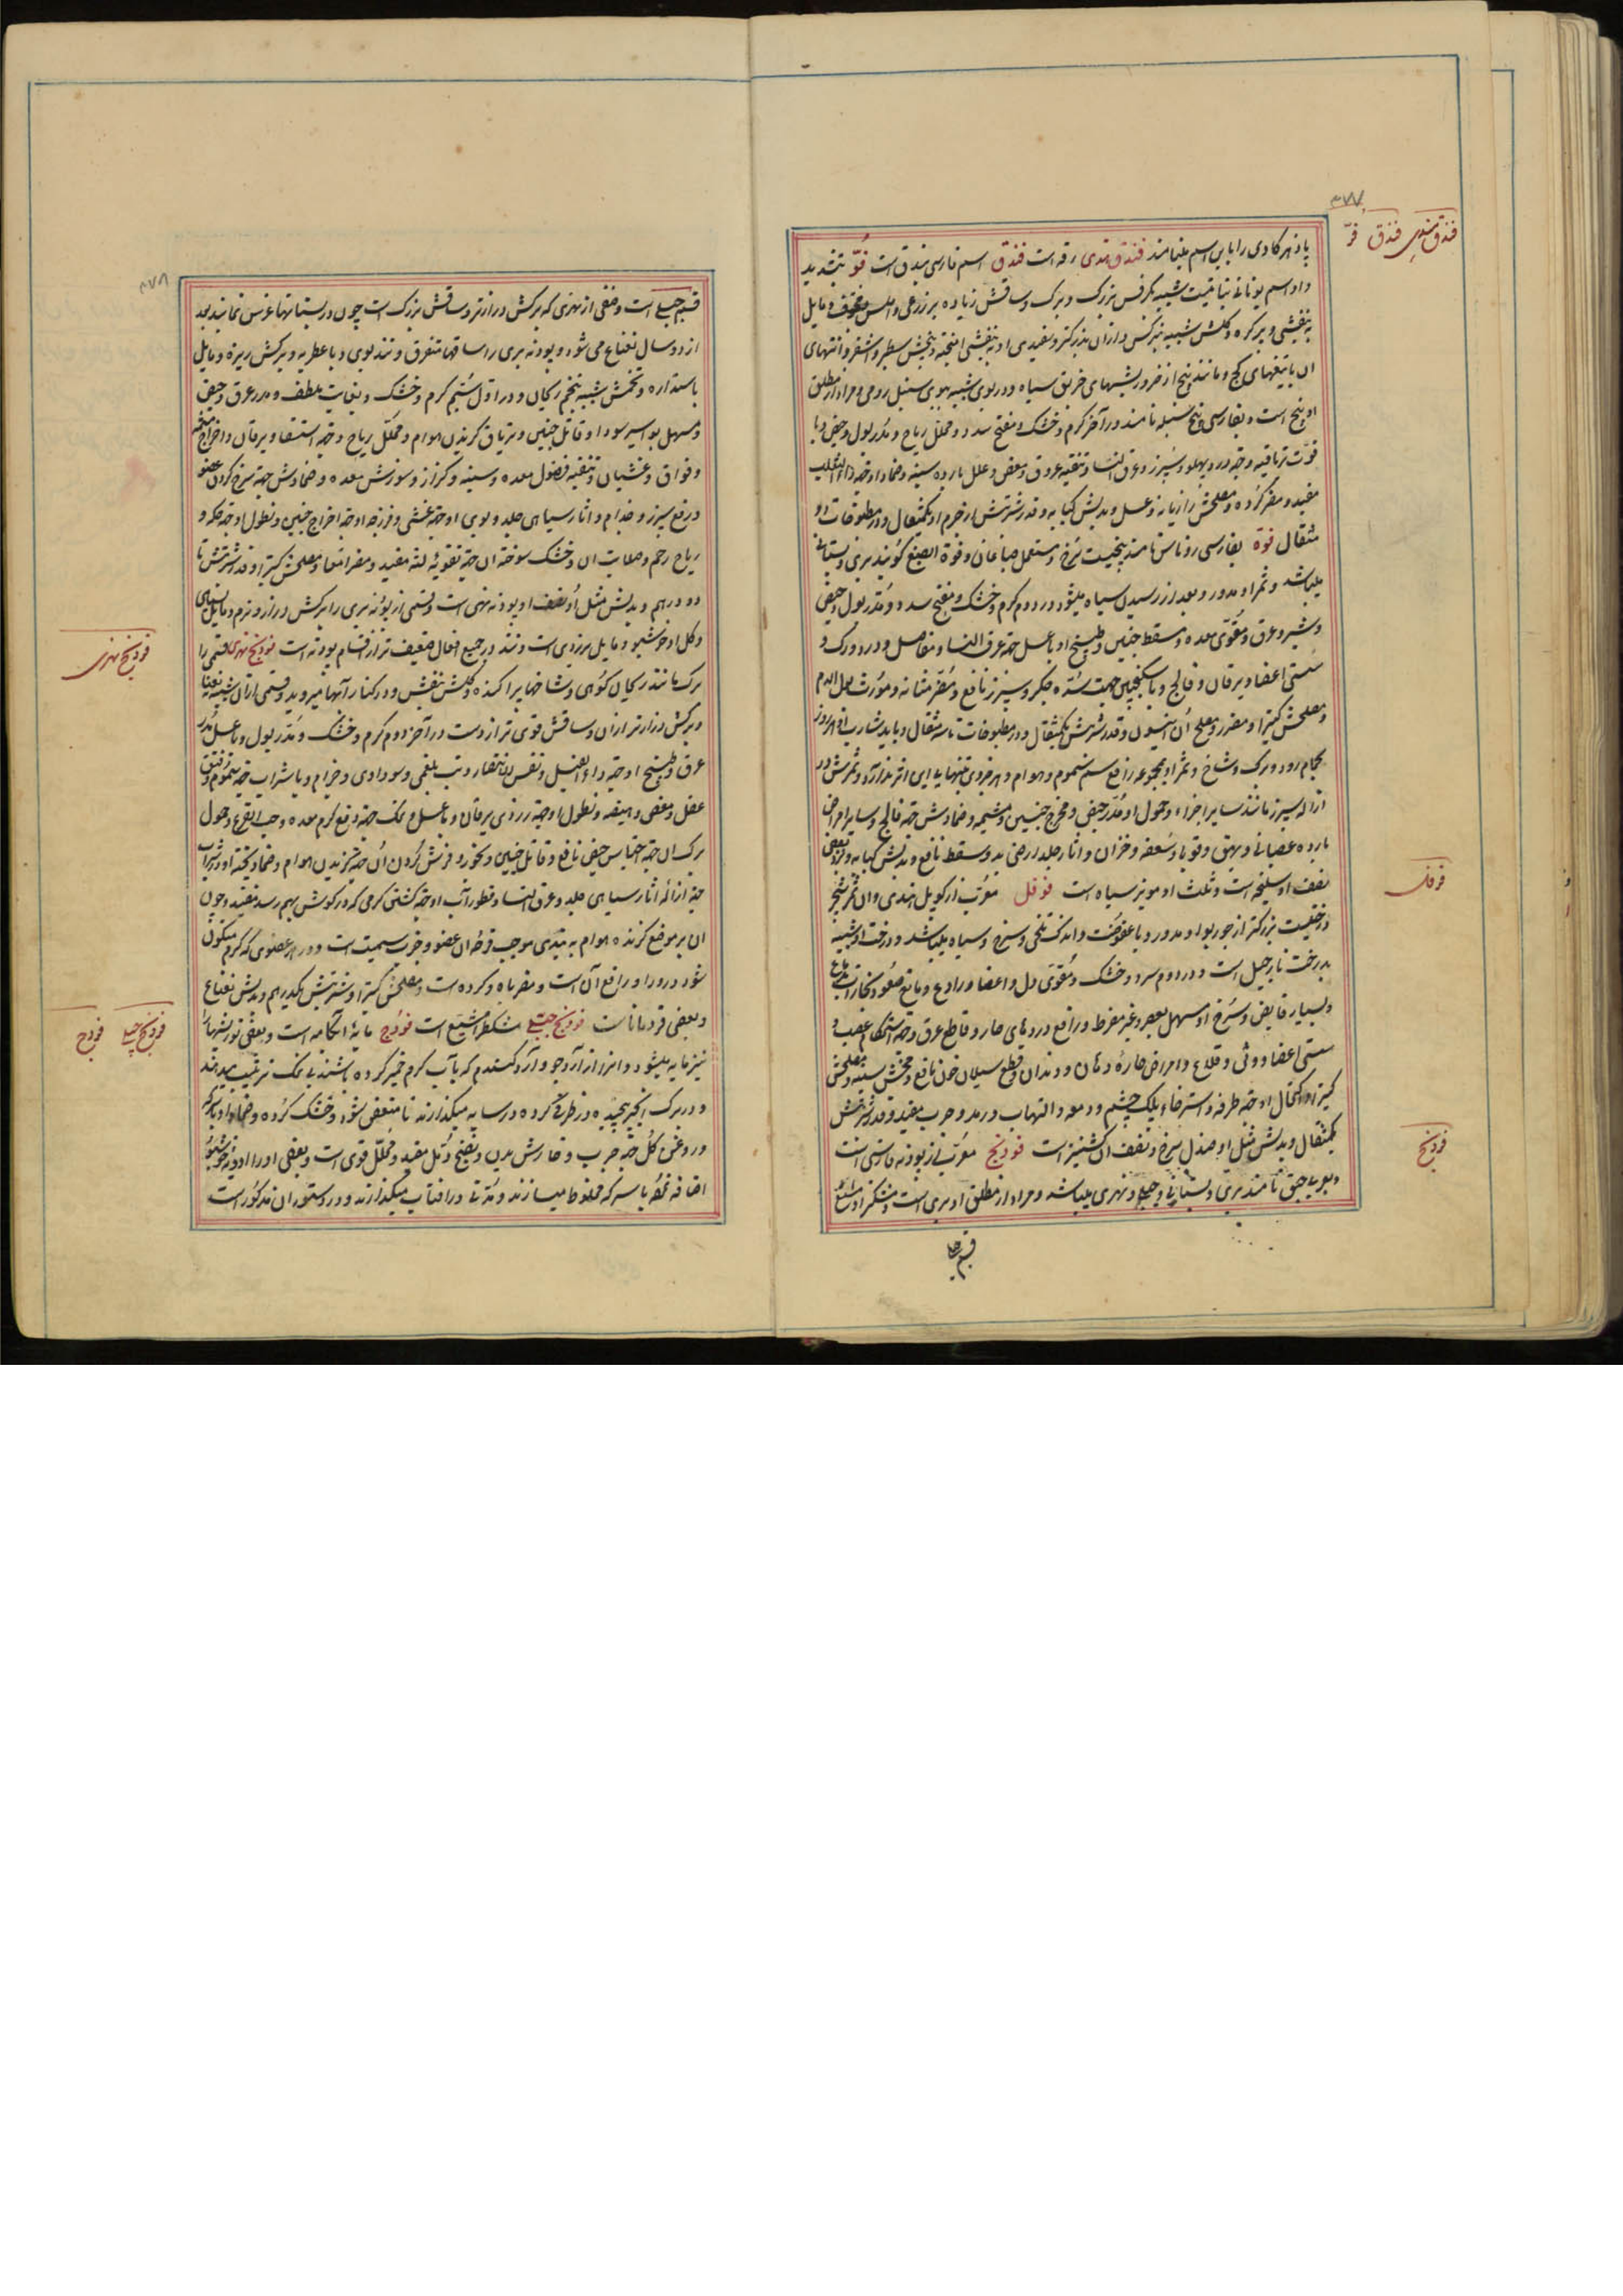 ۳۷۷
فندق هندی فندق فوّ
پادزهر کادی را باین اسم مینامند فندق هندی رته است فندق اسم فارسی بندق است فوّ بتشدید
واو اسم یونانی نباتیست شبیه بکرفس بزرک و برک و ساقش زیاده بر ذرعی و املس و مجوف و مایل
به بنفشی و پر کره و کلش شبیه بنرکس و از ان بزرکتر و سفیدی او به بنفشی امیخته و بیخش سطبر و اشقر و انتهای
ان با بیخهای کج و مانند بیخ اذخر و ریشهای خربق سیاه و در بوی شبیه ببوی سنبل رومی و مراد از مطلق
او بیخ است و بفارسی بیخ سنبله نامند در آخر دوم کرم و خشک و مفتح سدد و محلل ریاح و مدر بول و حیض و با
قوت تریاقیه و جهة درد پهلو و سپرز و عرق النسا و تنقیه عروق و مغص و علل بارده سینه و ضماد او جهة داء الثعلب
مفید و مضر کرده و مصلحش رازیانه و عسل و بدلش کبابه و قدر شربتش از جرم او یکمثقال و در مطبوخات دو
مثقال فوة بفارسی روناس نامند بیخیست سرخ و مستعمل صباغان و فوة الصبغ کویند بری و بستانی
میباشد و ثمر او مدور و بعد از رسیدن سیاه میشود در دوم کرم و خشک و مفتح سدد و مدر بول و حیض
و شیر و عرق و مقوی معده و مسقط جنین و طبیخ او با عسل جهة عرق النسا و مفاصل و درد ورک و
سستی اعضا و یرقان و فالج و با سکنجبین جهت سده جکر و سپرز نافع و مضر مثانه و مورث بول الدم
و مصلحش کتیرا و مضر سر و مصلح ان انیسون و قدر شربتش یکمثقال و در مطبوخات تا سه مثقال و باید شارب او هر روز
بحمام رود و برک و شاخ و ثمر او مجموعه رافع سم سموم و هوام و هر فردی بتنهایی این اثر ندارد و ثمرش در
ازاله سپرز مانند سایر اجزاء و حمول او مدر حیض و مخرج جنین و مشیمه و ضمادش جهة فالج و سایر امراض
بارده عصبانی و بهق و قوبا و سعفه و حزاز و اثار جلد
نصف او سلیخه است و ثلث او مویز سیاه است فوفل معرب از کوپل هندی و ان ثمر شجر
درختیست بزرکتر از جوز بوا و مدور و با عفوصت و اندک تلخی و سرخ و سیاه میباشد و درخت او شبیه
بدرخت نارجیل است و در دوم سرد و خشک و مقوی دل و اعضا و رادع و مانع صعود بخارات بدماغ
و بسیار قابض و سرخ او مسهل بعصر و غیر مفرط و رافع دردهای حار و قاطع عرق و جهة استحکام عصب و
سستی اعضا و وثی و قلاع و امراض حاره دهان و دندان و قطع سیلان خون نافع و مخشن سینه و مصلحش
کتیرا و اکتحال او جهة طرفه و استرخاء پلک چشم و دمعه و التهاب و رمد و جرب مفید و قدر شربتش
یکمثقال و بدلش مثل او صندل سرخ و نصف ان کشنیز است فودنج معرب از پودنه فارسی است
و بعربی حبق نامند بری و بستانی و جبلی و نهری میباشد و مراد از مطلق او بری است و مشکطرامشیع
قسم جبلی
فوفل
فودنج
۳۷۸
قسم جبلی است و صنفی از نهری که برکش درازتر و ساقش بزرک است چون در بستانها غرس نمایند بعد
از دو سال نعناع می شود و پودنه بری را ساقها متفرق و تند بوی و با عطریه و برکش ریزه و مایل
باستداره و تخمش شبیه بتخم ریحان و در اول سیم کرم و خشک و بغایت ملطف و مدر عرق و حیض
و مسهل بواسیر سودا و قاتل جنین و تریاق کزیدن هوام و محلل ریاح و جهة استسقا و یرقان و اخراج مشیمه
و فواق و غشیان و تنقیه فضول معده و سینه و کزاز و سوزش معده و ضمادش جهة سرخ کردن عضو
و رفع سپرز و جذام و اثار سیاهی جلد و بوی او جهة غشی و فرزجه او جهة اخراج جنین و نطول او جهة حکه و
ریاح رحم و صلابت ان و خشک سوخته ان جهة تقویه لثه مفید و مضر امعا و مصلحش کتیرا و قدر شربتش تا
دو درهم و بدلش مثل او نصف او پودنه نهری است و قسمی از پودنه بری را برکش دراز و نرم و مایل بسیاهی
و کل او خوشبو و مایل بزردی است و تند و در جمیع افعال ضعیف تر از اقسام پودنه است فودنج نهری قسمی را
برک مانند ریحان کوهی و شاخها پراکنده و کلش بنفش و در کنار آبها میروید و قسمی از ان شبیه بنعناع
و برکش درازتر از ان و ساقش قوی تر از وست در آخر دوم کرم و خشک و مدر بول و با عسل مدر
عرق و طبیخ او جهة داء الفیل و نفس الانتصاب و تب بلغمی و سوداوی و جذام و با شراب جهة سموم و فتق
عضل و مغص و هیضه و نطول او جهة زردی یرقان و با عسل و نمک جهة دفع کرم معده و حب القرع و حمول
برک ان جهة احتباس حیض نافع و قاتل جنین و بخور و فرش کردن ان جهة کریزیدن هوام و ضماد پخته او در شراب
جهة ازاله اثار سیاهی جلد و عرق النسا و قطور آب او جهة کشتن کرمی که در کوش بهم رسد مفید و چون
ان بر موضع کزنده هوام به بندی موجب قرحه ان عضو و جذب سمیت است و در هر عضوی که کرم میتکون
شود ذرور او رافع آن است و مضر باه و کرده است و مصلحش کتیرا و شربتش یکدرهم و بدلش نعناع
و بعضی قردماناست فودنج جبلی مشکطرامشیع است فودج مایه آبکامه است و بعضی توزینها را
نیز مایه میشود و انرا از آرد جو و آرد کندم که بآب کرم خمیر کرده باشند بی نمک ترتیب میدهند
و در برک انجیر پیچیده در ظرفی کرده در سایه میکذارند تا متعفن شود و خشک کرده و ضماد او با سرکه
و روغن کل جهة جرب و خارش بدن و نضیج دمل مفید و محلل قوی است و بعضی او را ادویه خوشبو
اضافه نموده با سرکه مخلوط میسازند و مدتی در افتاب میکذارند و در دستوران مذکور است
فودنج نهری
فودنج جبلی فودج